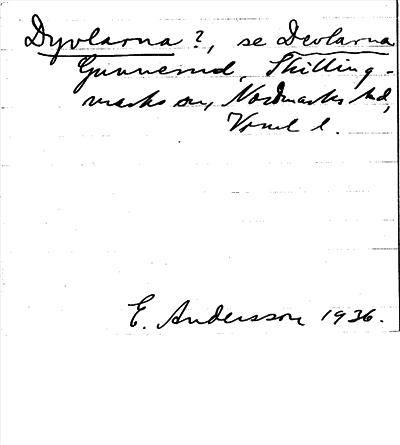 Dyvlarna?, se Devlarna
Gunnerud, Skilling-
marks sn, Nordmarks hd,
Vrml l.
E. Andersson 1936.